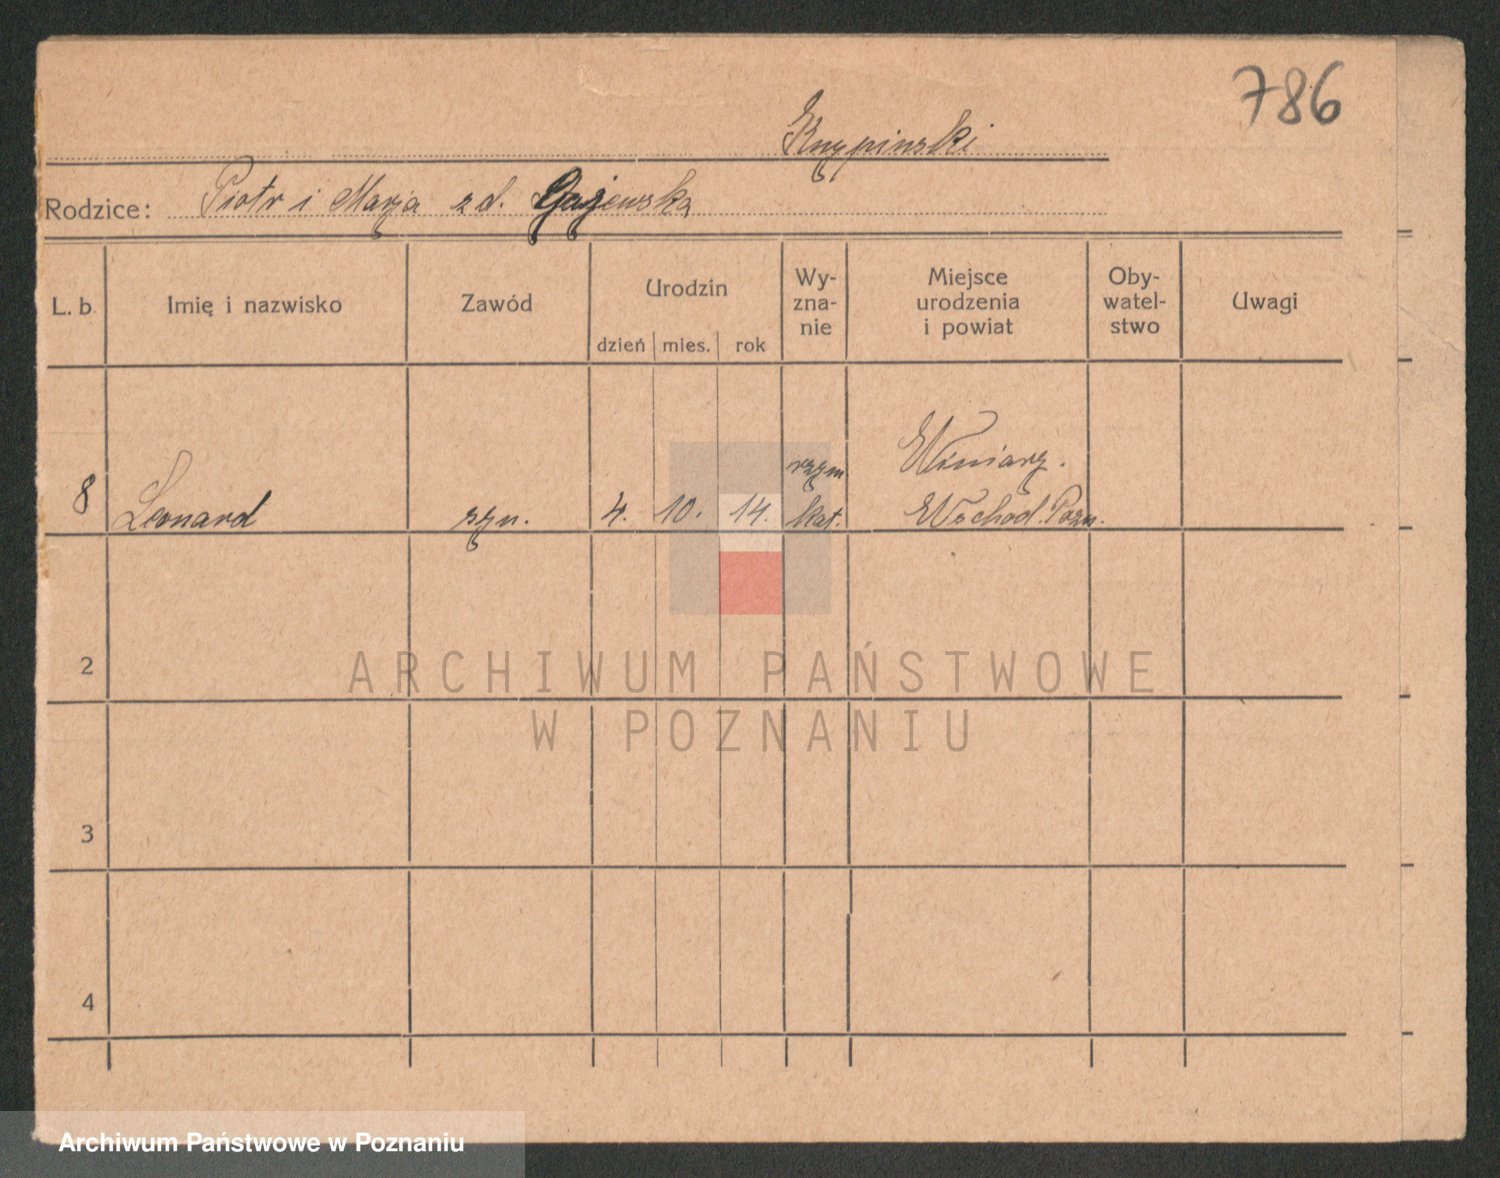 786
Knypinski
Rodzice: Piotr i Marja zd. Gajewska
L. b. Imię i nazwisko Zawód Urodzin Wy-
zna-
nie Miejsce
urodzenia
i powiat Oby-
watel-
stwo Uwagi
dzień mies. rok
8 Leonard syn. 4. 10. 14. rzym
kat. Winiary.
Wschod. Pozn.
2
3
4
ARCHIWUM PAŃSTWOWE
W POZNANIU
Archiwum Państwowe w Poznaniu